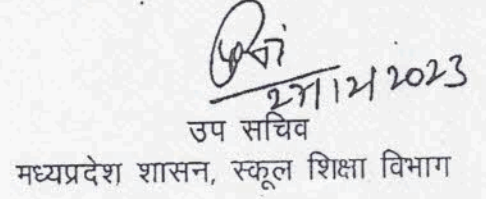 2023
उप सचिव
मध्यप्रदेश शासन, स्कूल शिक्षा विभाग